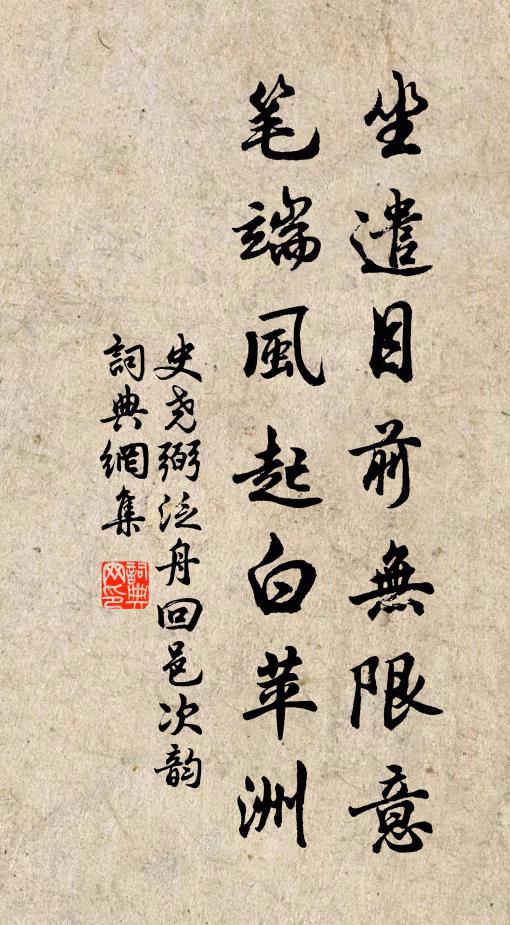 坐遣目前無限意
笔端風起白苹洲
史尧弼泛舟回邑次韵
詞典網集
詞典网印